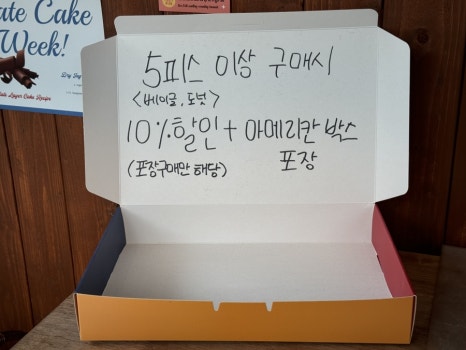 ate Cake
Week!
5피스 이상 구매시
<베이글, 도넛>
10%할인 + 아메리칸 박스
(포장구매만 해당) 포장